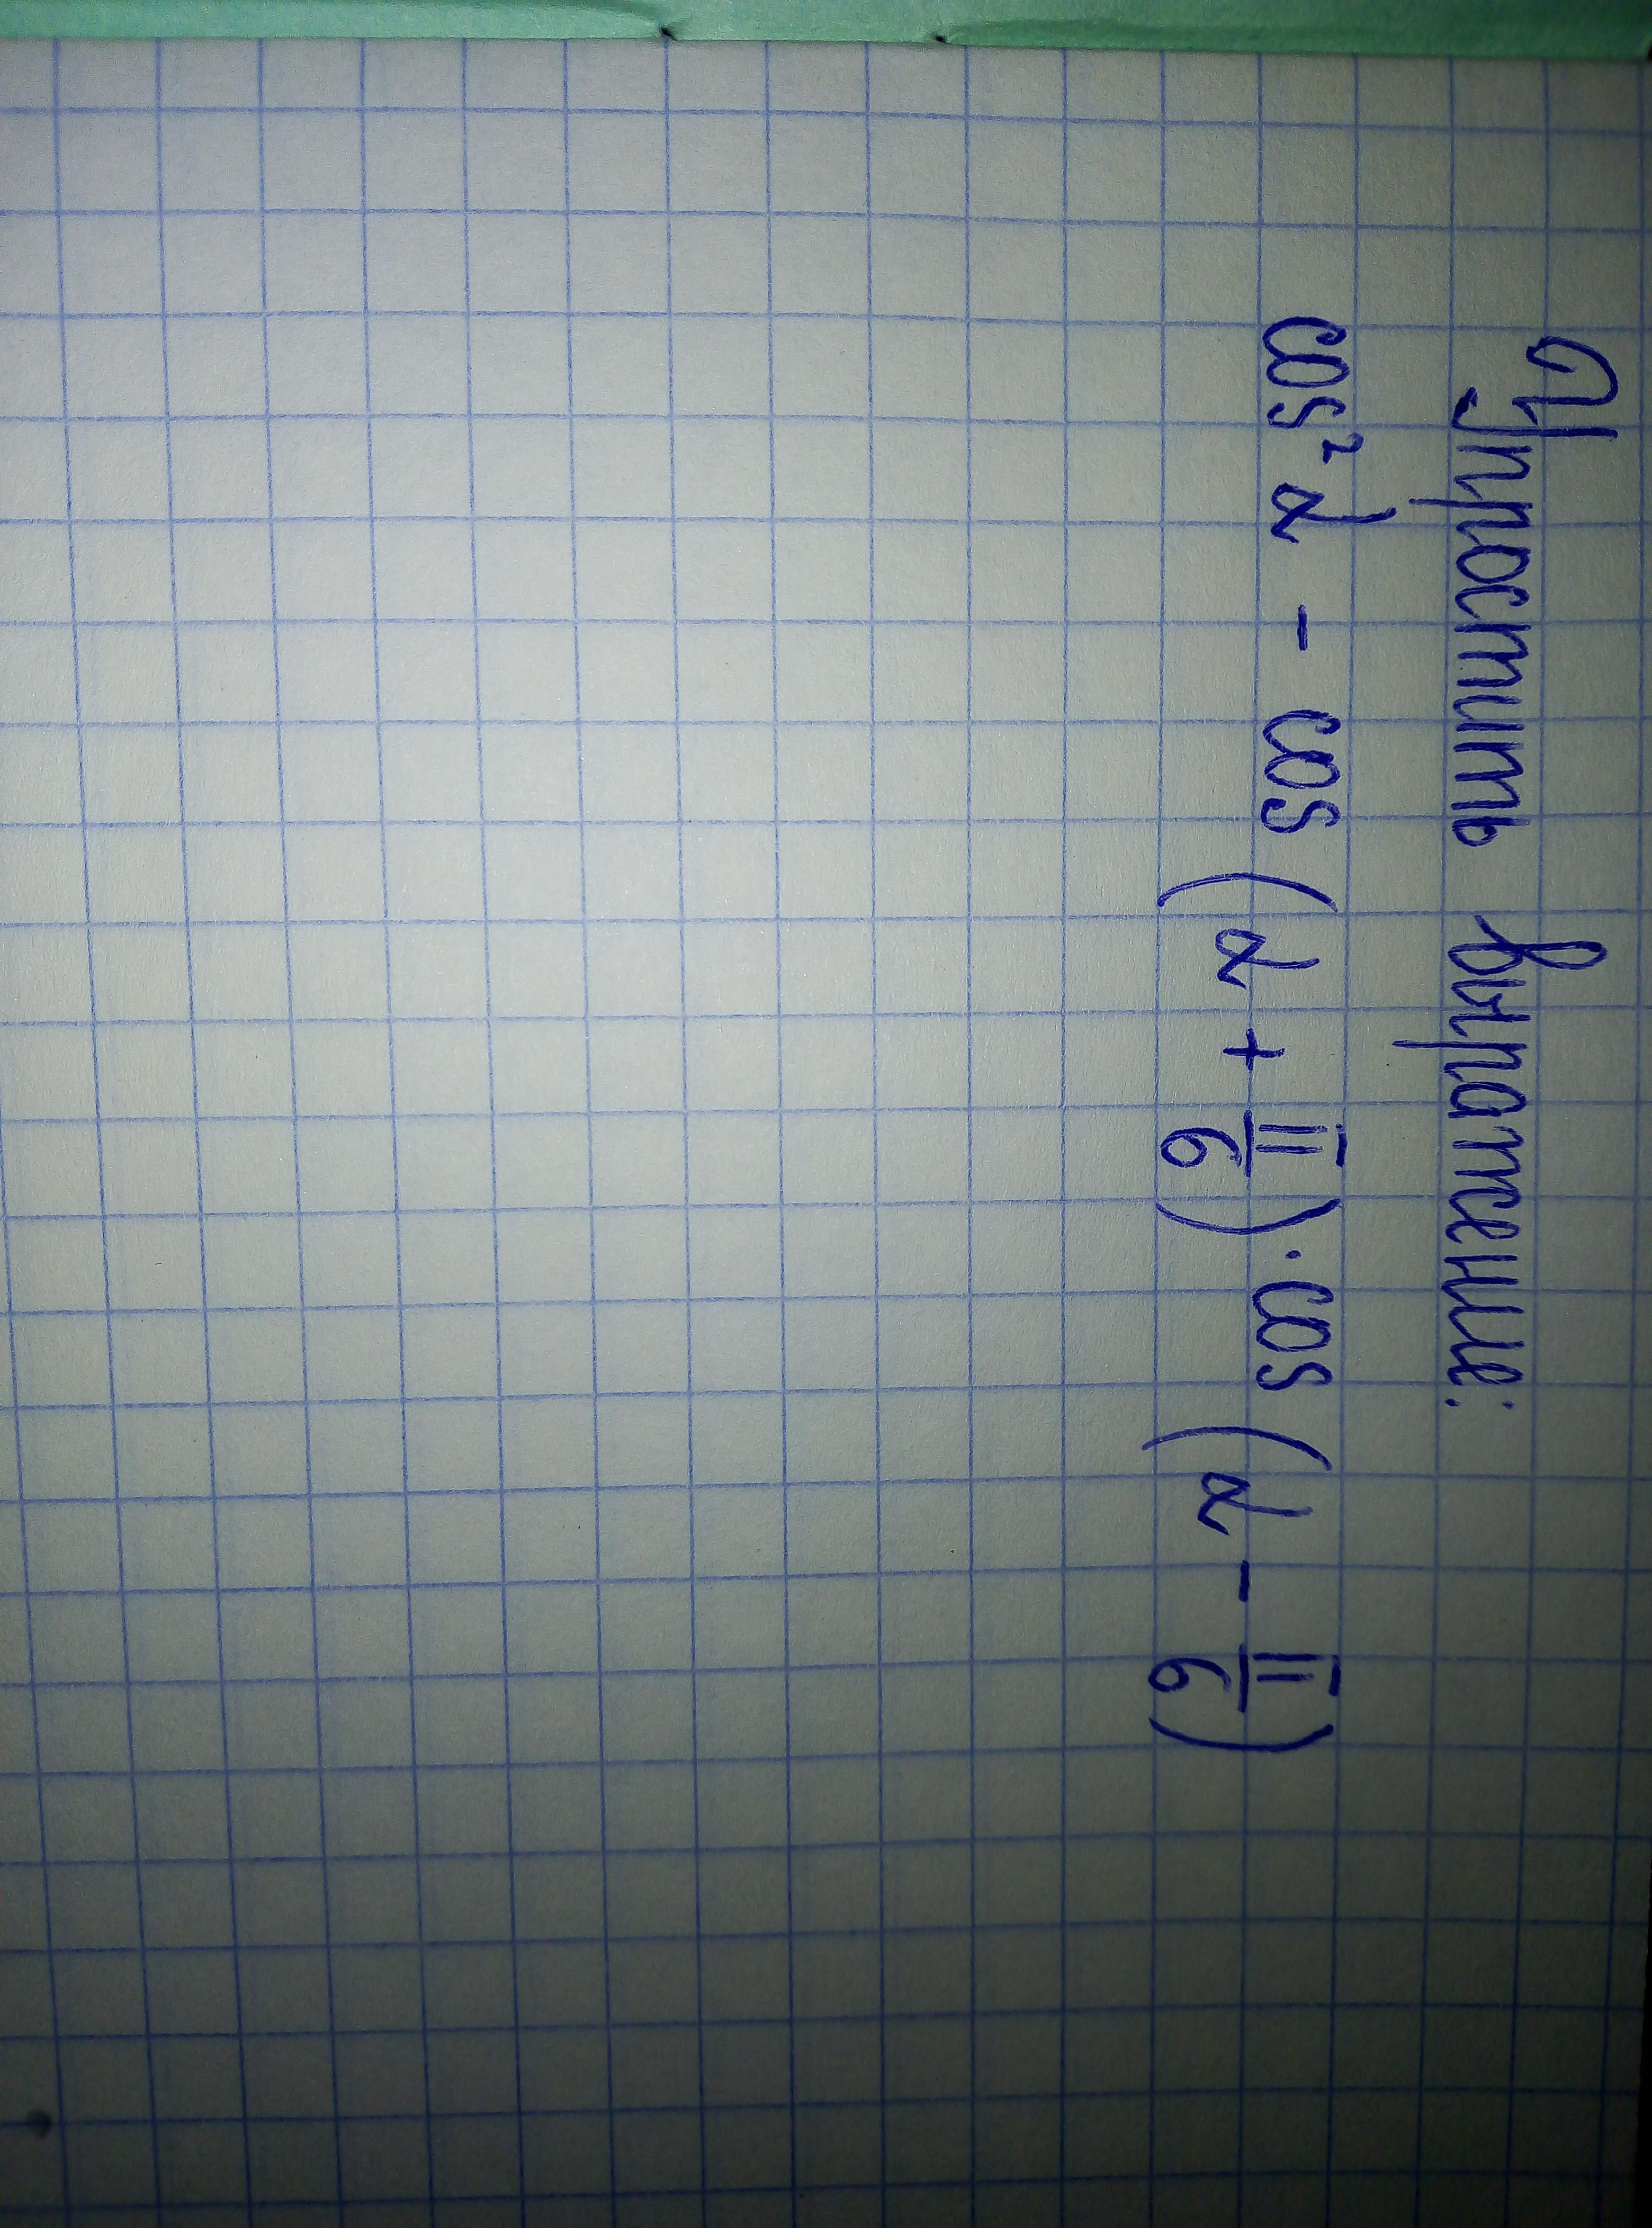 Упростить выражение:
cos² α - cos (α + π/6) · cos (α - π/6)